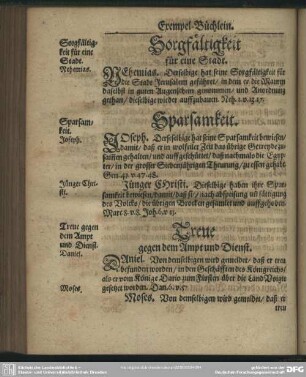 Exempel-Büchlein.
Sorgfältig-
keit für eine
Stadt.
Nehemias.
Sorgfältigkeit
für eine Stadt.
NEhemias. Derselbige hat seine Sorgfältigkeit für
die Stadt Jerusalem geführet, in dem er die Mauren
daselbst in guten Augenschein genommen, und Anordnung
gethan, dieselbige wieder auffzubauen. Neh. 2. v. 13. 17.
Sparsam-
keit.
Joseph.
Sparsamkeit.
JOseph. Derselbige hat seine Sparsamkeit bewiesen,
damit, daß er in wolfeiler Zeit das übrige Getreyde zu-
sammen gehalten, und auffgeschüttet, daß man hernach die Egyp-
ter, in der grossen Siebenjährigen Theurung,
Gen. 41. v. 47. 48.
Jünger Chri-
sti.
Jünger Christi. Dieselbige haben ihre Spar-
samkeit bewiesen, damit, daß sie, nach abspeisung
des Volcks, die übrigen Brocken gesamlet und auffgehoben.
Marc. 8. v. 8. Joh. 6. v. 13.
Treue gegen
dem Ampt
und Dienst.
Daniel.
Treue
gegen dem Ampt und Dienst.
DAniel. Von demselbigen wird gemeldet, daß er treu
befunden worden, in den Geschäfften des Königreichs,
als er vom Könige Dario zum Fürsten über die Land Voigte
gesetzet worden. Dan. 6. v. 4.
Moses.
Moses. Von demselbigen wird gemeldet, daß er
treu